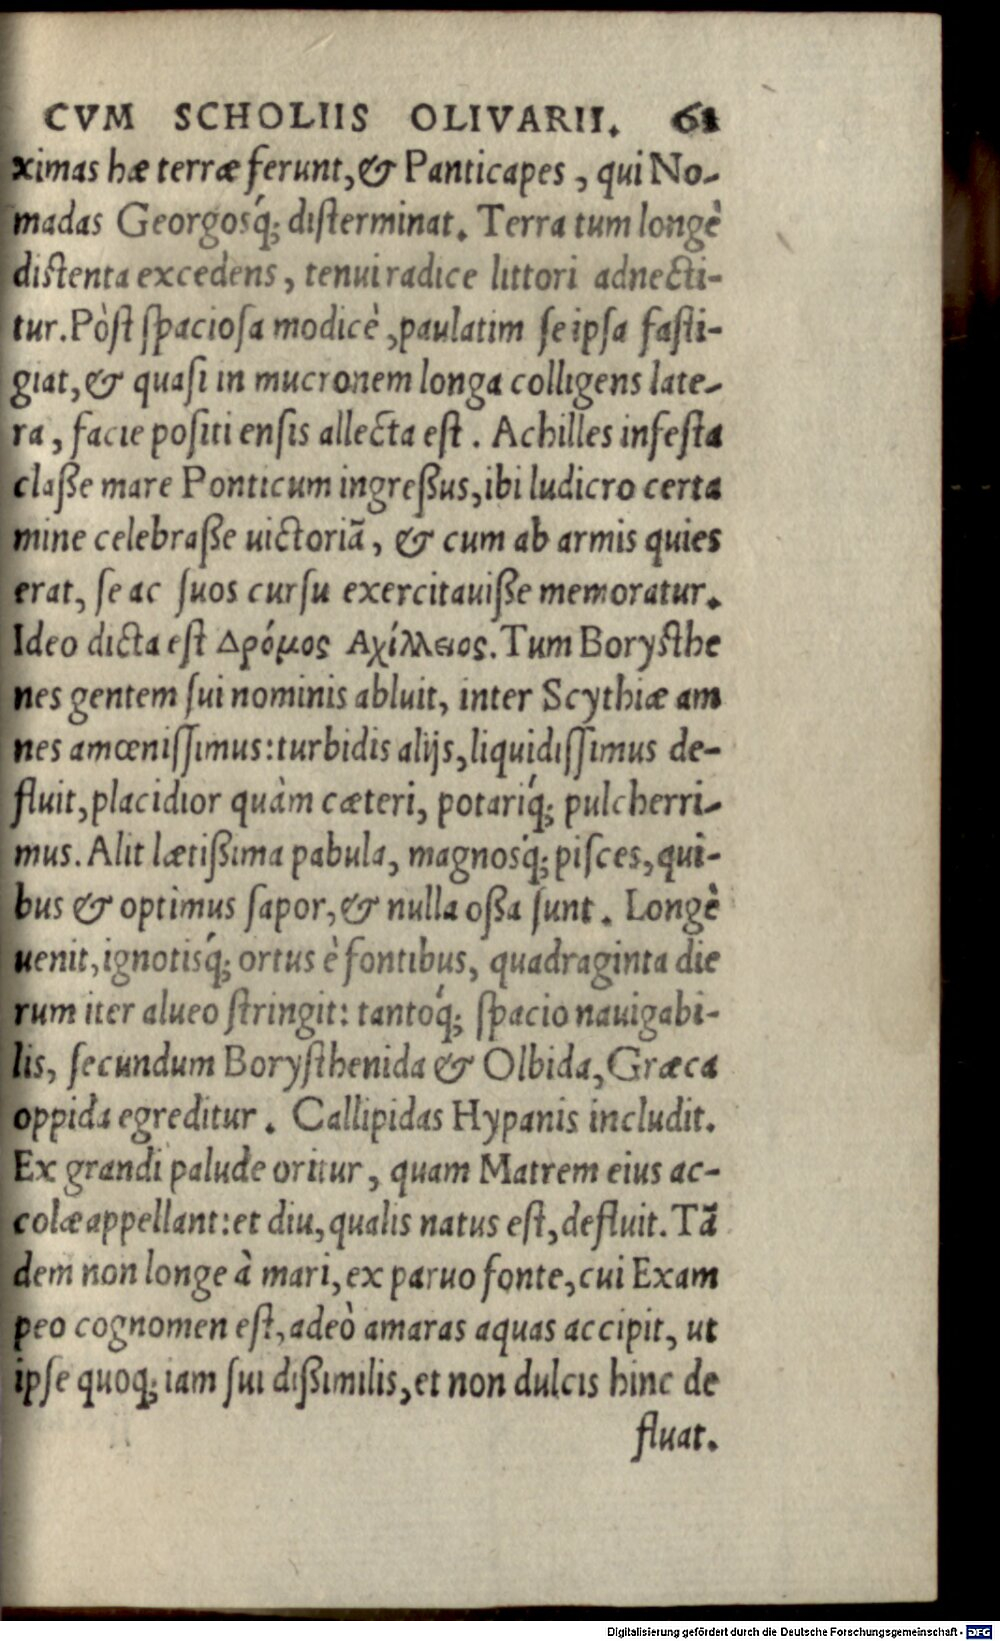 CVM SCHOLIIS OLIVARII. 61
ximas hæ terræ ferunt, & Panticapes, qui No-
madas Georgosq́; disterminat. Terra tum longè
distenta excedens, tenui radice littori adnecti-
tur. Pòst spaciosa modicè, paulatim se ipsa fasti-
giat, & quasi in mucronem longa colligens late-
ra, facie positi ensis allecta est. Achilles infesta
claße mare Ponticum ingreßus, ibi ludicro certa
mine celebraße uictoriã, & cum ab armis quies
erat, se ac suos cursu exercitauiße memoratur.
Ideo dicta est Δρόμος Αχίλλειος. Tum Borysthe
nes gentem sui nominis abluit, inter Scythiæ am
nes amœnissimus: turbidis alijs, liquidissimus de-
fluit, placidior quàm cæteri, potariq́; pulcherri-
mus. Alit lætißima pabula, magnosq́; pisces, qui-
bus & optimus sapor, & nulla oßa sunt. Longè
uenit, ignotisq́; ortus è fontibus, quadraginta die
rum iter alueo stringit: tantoq́; spacio nauigabi-
lis, secundum Borysthenida & Olbida, Græca
oppida egreditur. Callipidas Hypanis includit.
Ex grandi palude oritur, quam Matrem eius ac-
colæ appellant: et diu, qualis natus est, defluit. Tã
dem non longe à mari, ex paruo fonte, cui Exam
peo cognomen est, adeò amaras aquas accipit, ut
ipse quoq; iam sui dißimilis, et non dulcis hinc de
fluat.
Digitalisierung gefördert durch die Deutsche Forschungsgemeinschaft - DFG